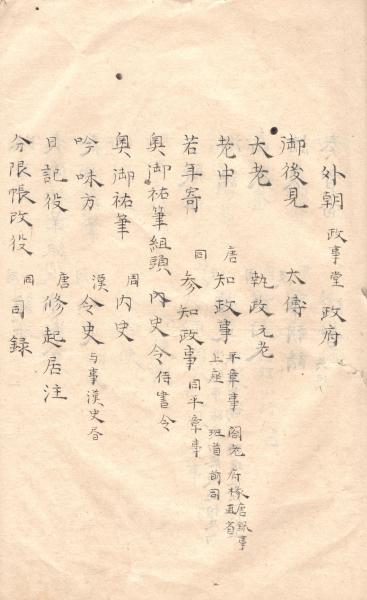 外朝 政事堂 政府
御後見 太傅
大老 執政元老
老中 唐 知政事 平章事 閣老
上座 班首
若年寄 同 参知政事 同平章事
奥御祐筆組頭 内史令 侍書令
奥御祐筆 周 内史
吟味方 漢 令史
日記役 唐 修起居注
分限帳改役 同 司録